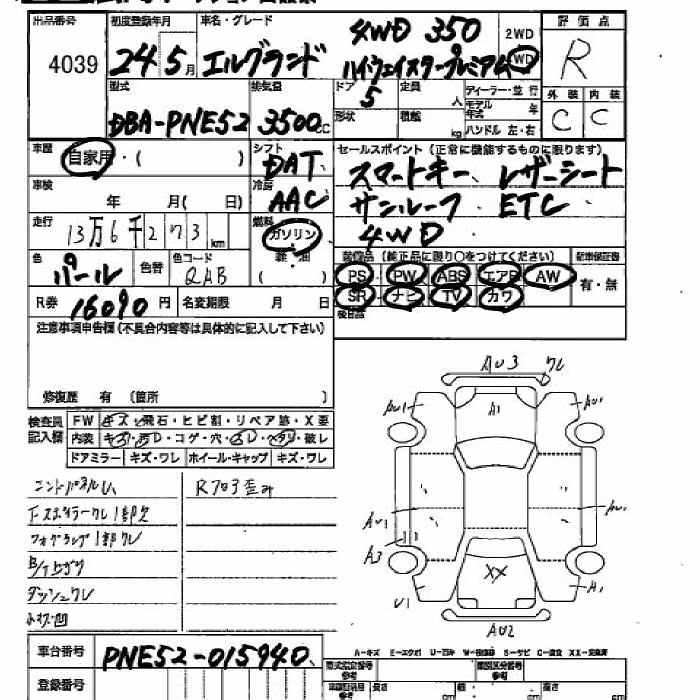 出品番号 初度登録年月 車名・グレード 4WD 350 2WD 評価点
4039 24 5月 エルグランド ハイウェイスタープレミアム 4WD R
型式 排気量 ドア 定員 人 ディーラー・並行 外装 内装
DBA-PNE52 3500cc 5 形状 積載 kg モデル年式 年 C C
ハンドル 左・右
車歴 自家用・( ) シフト セールスポイント (正常に機能するものに限ります)
DAT スマートキー レザーシート
車検 年 月( 日) 冷房 AAC サンルーフ ETC
走行 13万6千273km 燃料 ガソリン 4WD
軽・油
色 パール 色替 色コード QAB ( )
装備品 (純正品に限り○をつけてください) 新車保証書
PS PW ABS エアB AW 有・無
SR ナビ TV カワ
R券 16090円 名変期限 月 日 後日品
注意事項申告欄 (不具合内容等は具体的に記入して下さい)
修復歴 有 (箇所 )
検査員記入欄 FW キズ・飛石・ヒビ割・リペア跡・X要
内装 キズ・汚レ・コゲ・穴・スレ・ヘタリ・破レ
ドアミラー キズ・ワレ ホイール・キャップ キズ・ワレ
Rフロア歪み
ダッシュワレ
AU3 ワレ
AU1 A1 AU1
AU1
A3
XX
U1 A1
AU2
車台番号 PNE52-015940
A-キズ E-エクボ U-凹み W-板金跡 S-サビ C-腐食 XX-交換済
登録番号 型式指定番号 類別区分番号
参考 長さ cm 幅 cm 高さ cm